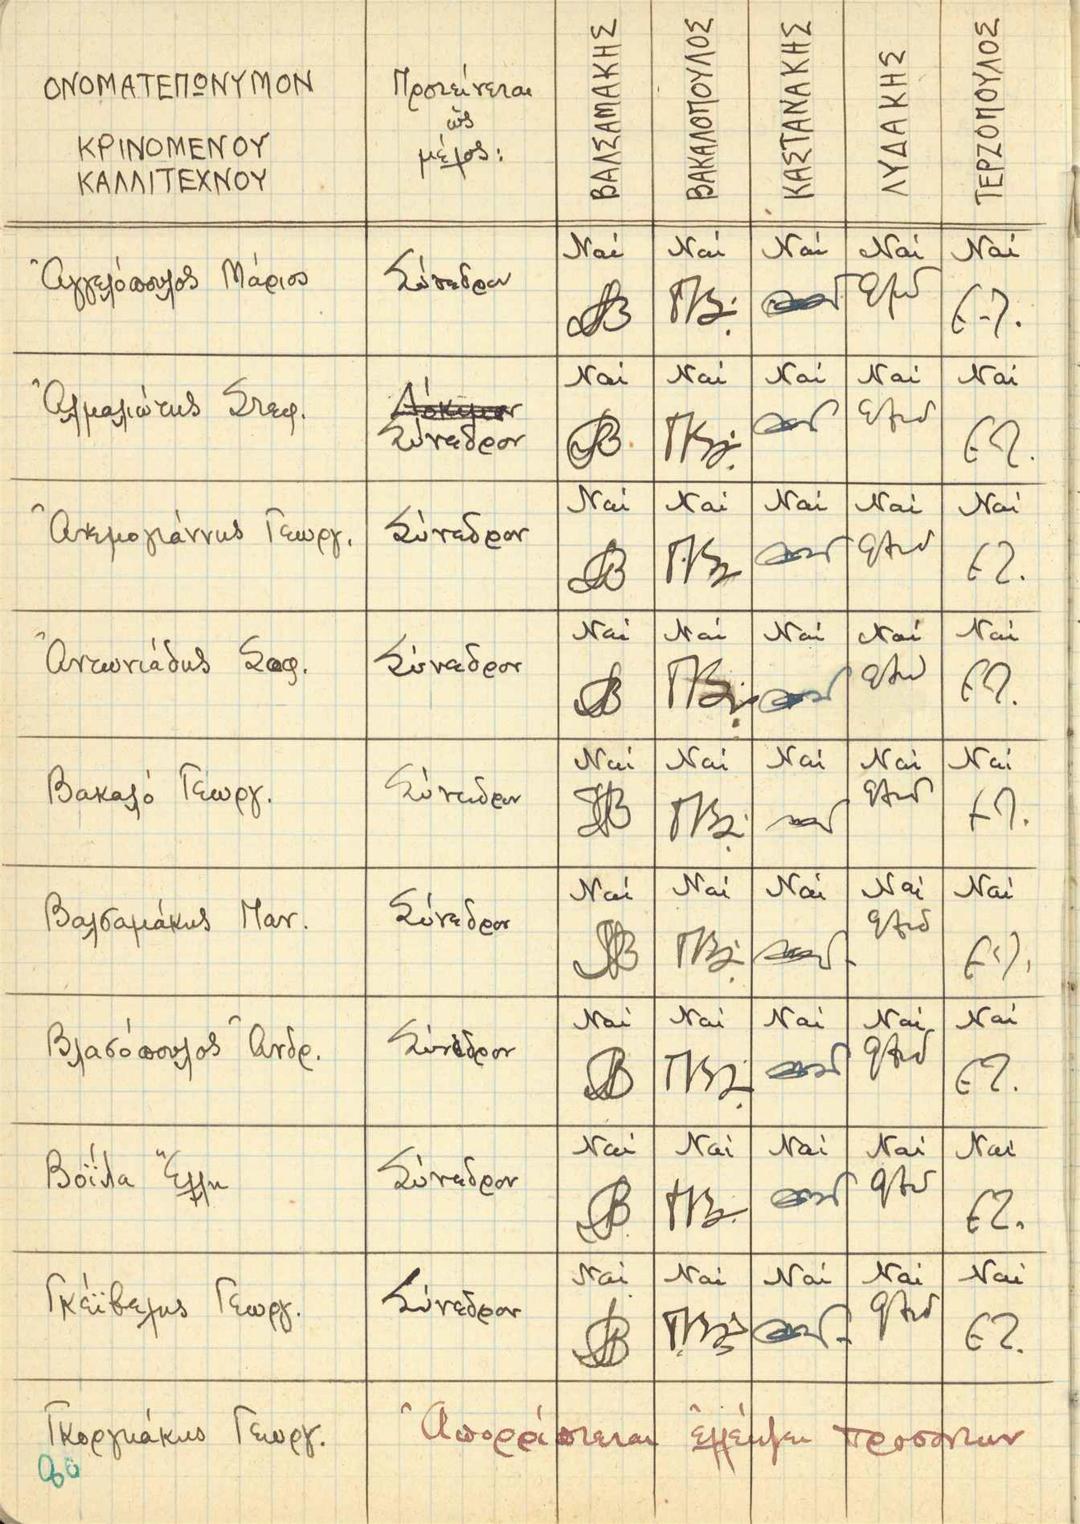 ΟΝΟΜΑΤΕΠΩΝΥΜΟΝ
ΚΡΙΝΟΜΕΝΟΥ
ΚΑΛΛΙΤΕΧΝΟΥ
Προτείνεται
ὡς
μέλος:
ΒΑΛΣΑΜΑΚΗΣ
ΒΑΚΑΛΟΠΟΥΛΟΣ
ΚΑΣΤΑΝΑΚΗΣ
ΛΥΔΑΚΗΣ
ΤΕΡΖΟΠΟΥΛΟΣ
Ναί Ναί Ναί Ναί Ναί
Ἀγγελόπουλος Μάριος Σύνεδρον
Ναί Ναί Ναί Ναί Ναί
Ἀλμαλιώτης Στεφ. Δόκιμον
Σύνεδρον
Ναί Ναί Ναί Ναί Ναί
Ἀνεμογιάννης Γεωργ. Σύνεδρον
Ναί Ναί Ναί Ναί Ναί
Ἀντωνιάδης Σοφ. Σύνεδρον
Ναί Ναί Ναί Ναί Ναί
Βακαλό Γεωργ. Σύνεδρον
Ναί Ναί Ναί Ναί Ναί
Βαλσαμάκης Παν. Σύνεδρον
Ναί Ναί Ναί Ναί Ναί
Βλασόπουλος Ἀνδρ. Σύνεδρον
Ναί Ναί Ναί Ναί Ναί
Βοΐλα Ἕλλη Σύνεδρον
Ναί Ναί Ναί Ναί Ναί
Γκέϊβελης Γεωργ. Σύνεδρον
Γκοργκάκης Γεωργ. Ἀπορρίπτεται ἐλλείψει προσόντων